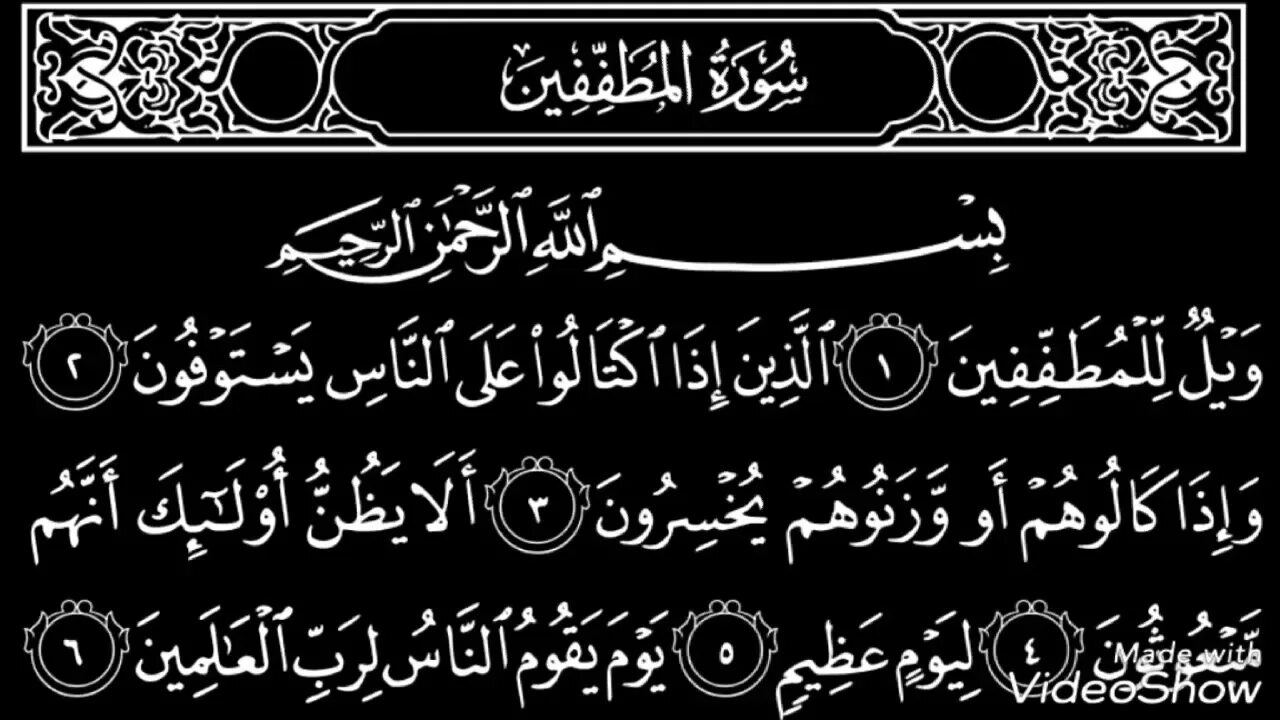 سُورَةُ المُطَفِّفِينَ
بِسْمِ ٱللَّهِ ٱلرَّحْمَٰنِ ٱلرَّحِيمِ
وَيْلٌ لِّلْمُطَفِّفِينَ ١ ٱلَّذِينَ إِذَا ٱكْتَالُوا۟ عَلَى ٱلنَّاسِ يَسْتَوْفُونَ ٢
وَإِذَا كَالُوهُمْ أَو وَّزَنُوهُمْ يُخْسِرُونَ ٣ أَلَا يَظُنُّ أُو۟لَٰٓئِكَ أَنَّهُم
مَّبْعُوثُونَ ٤ لِيَوْمٍ عَظِيمٍ ٥ يَوْمَ يَقُومُ ٱلنَّاسُ لِرَبِّ ٱلْعَٰلَمِينَ ٦
Made with
VideoShow